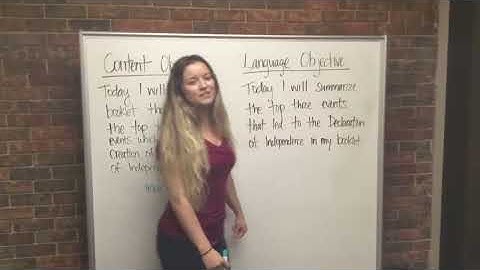 Content Ob
Today I will
booklet tha
the top t
events which
creation of
of Indepen
Language Objective
Today I will summarize
the top three events
that led to the Declaration
of Independence in my booklet